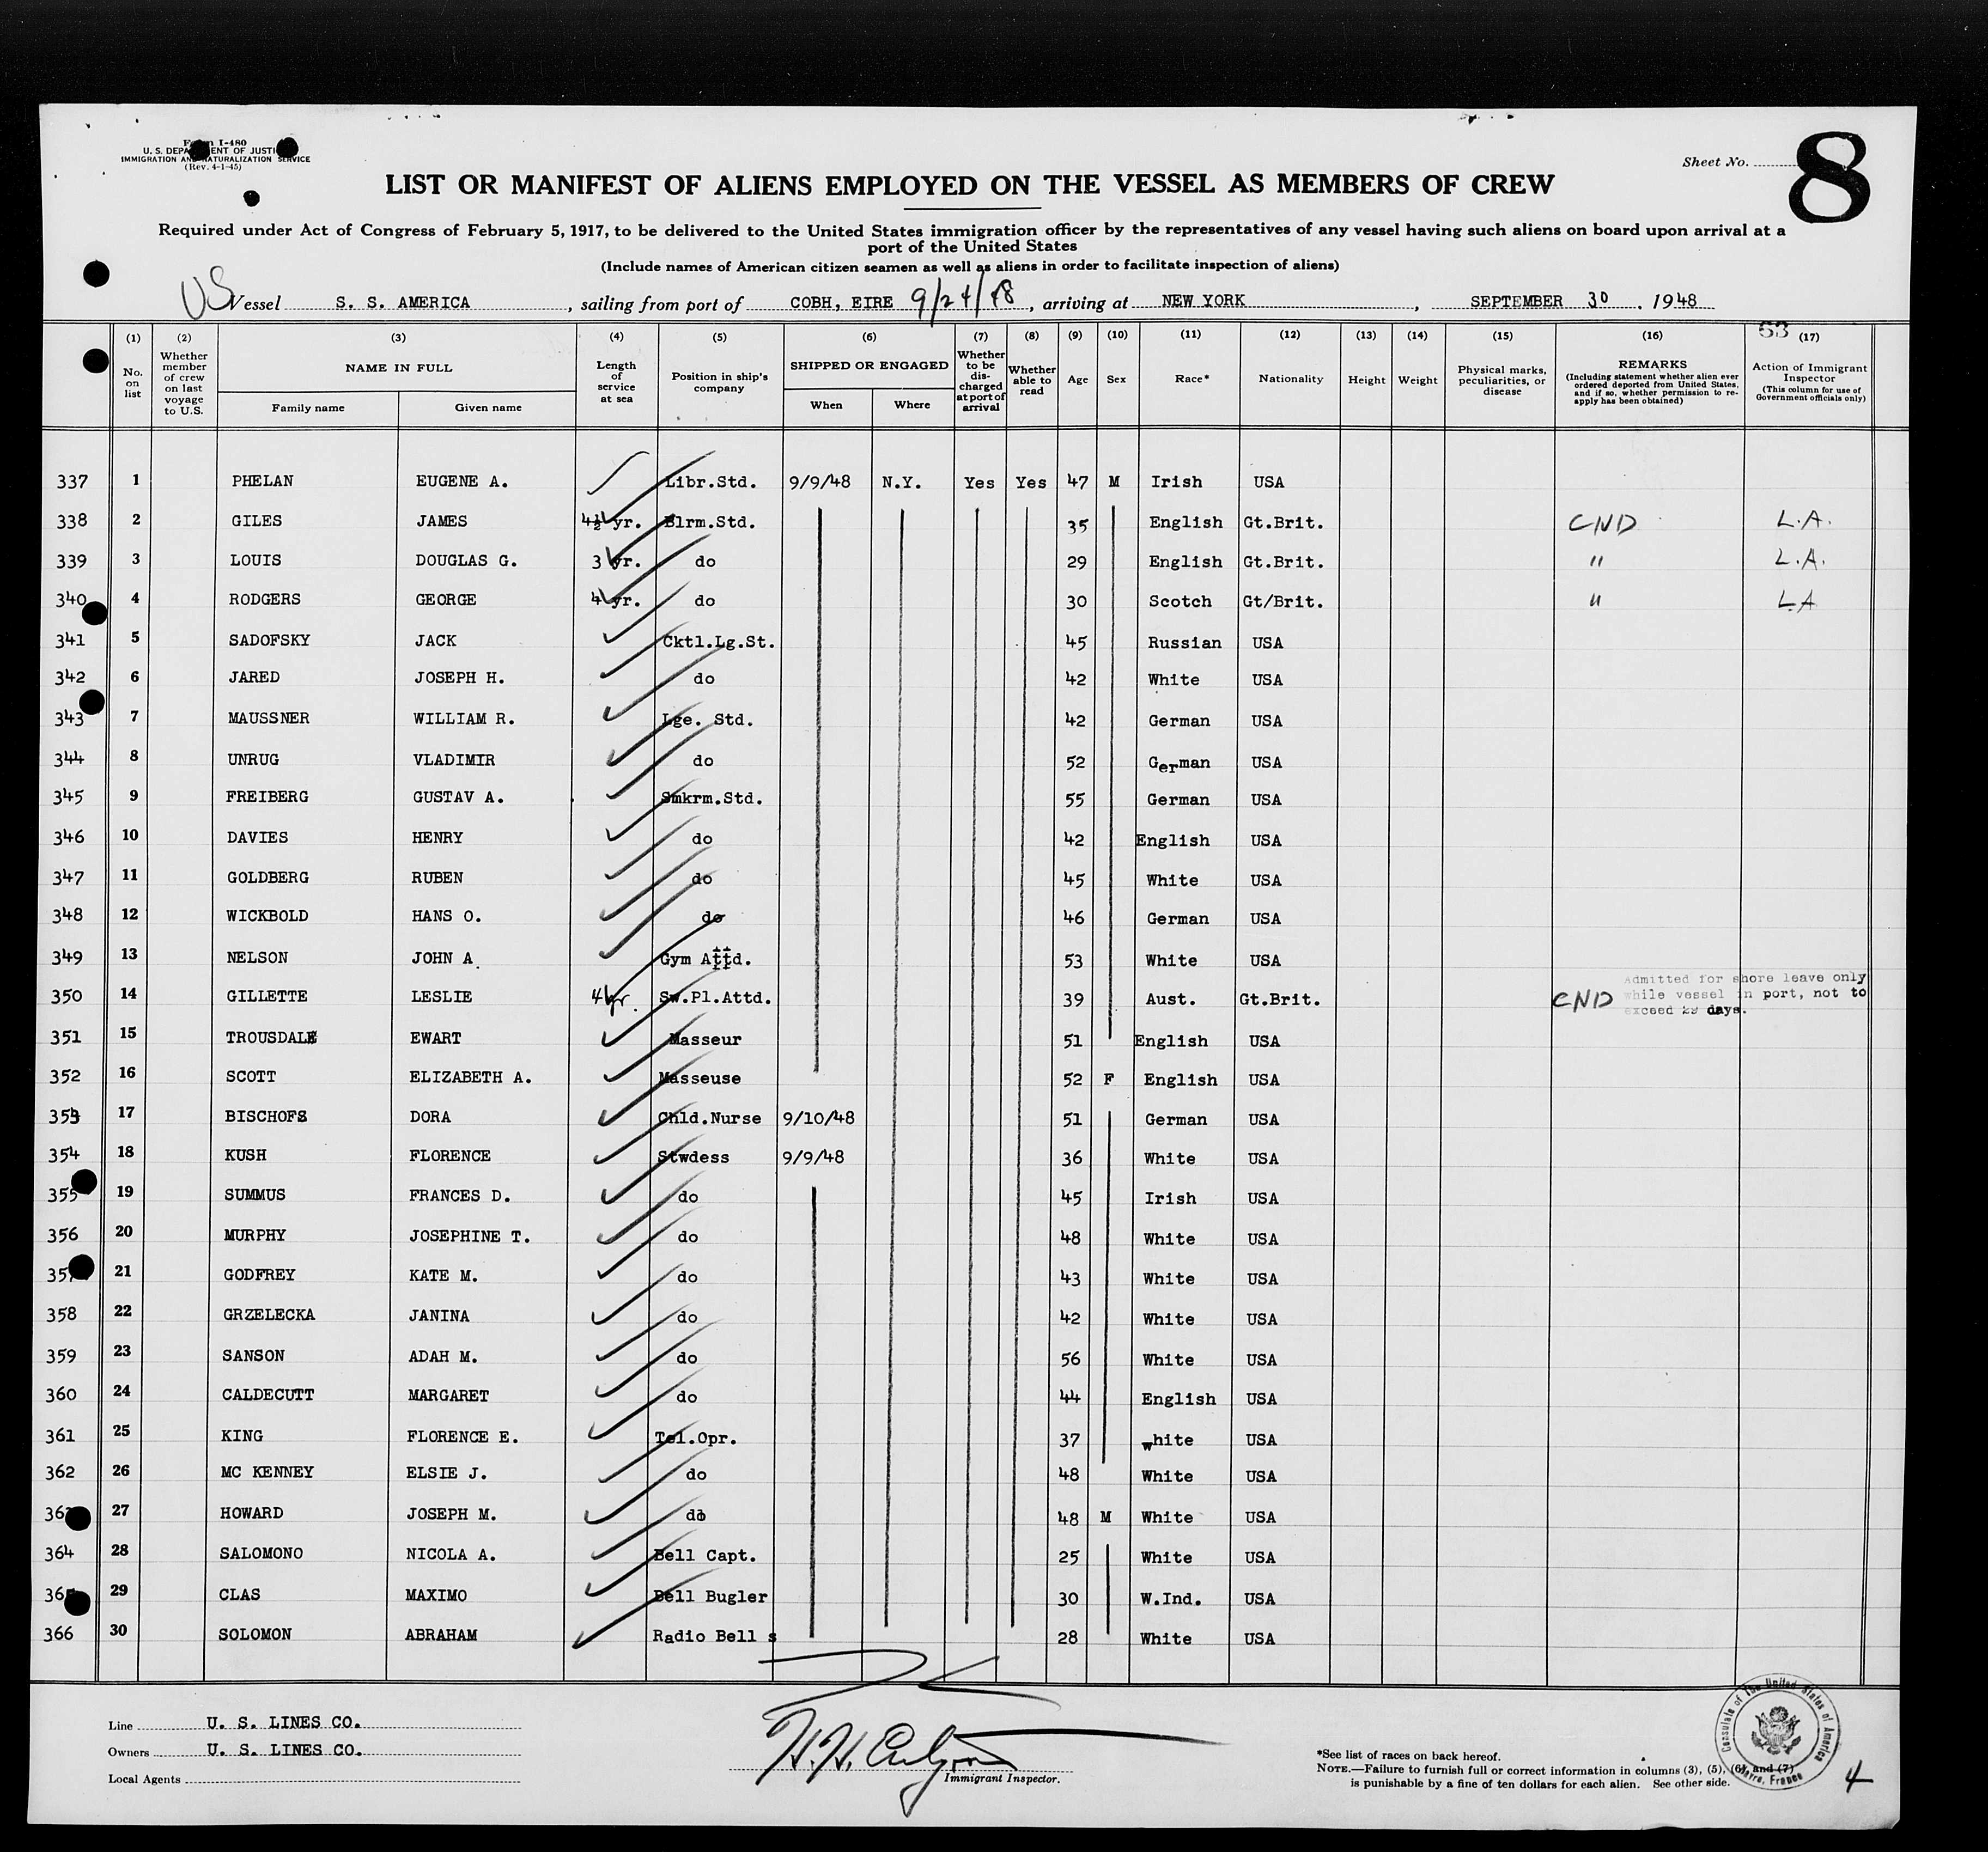 Form I-480
U. S. DEPARTMENT OF JUSTICE
IMMIGRATION AND NATURALIZATION SERVICE
(Rev. 4-1-45)
Sheet No. 8
LIST OR MANIFEST OF ALIENS EMPLOYED ON THE VESSEL AS MEMBERS OF CREW
Required under Act of Congress of February 5, 1917, to be delivered to the United States immigration officer by the representatives of any vessel having such aliens on board upon arrival at a
port of the United States
(Include names of American citizen seamen as well as aliens in order to facilitate inspection of aliens)
US Vessel S. S. AMERICA, sailing from port of COBH, EIRE 9/24/48, arriving at NEW YORK, SEPTEMBER 30, 1948
53
(1) No. on list
(2) Whether member of crew on last voyage to U.S.
(3) NAME IN FULL Family name Given name
(4) Length of service at sea
(5) Position in ship's company
(6) SHIPPED OR ENGAGED When Where
(7) Whether to be discharged at port of arrival
(8) Whether able to read
(9) Age
(10) Sex
(11) Race*
(12) Nationality
(13) Height
(14) Weight
(15) Physical marks, peculiarities, or disease
(16) REMARKS (Including statement whether alien ever ordered deported from United States, and if so, whether permission to re-apply has been obtained)
(17) Action of Immigrant Inspector (This column for use of Government officials only)
337 1 PHELAN EUGENE A. Libr.Std. 9/9/48 N.Y. Yes Yes 47 M Irish USA
338 2 GILES JAMES 4½ yr. Blrm.Std. 35 English Gt.Brit. CND L.A.
339 3 LOUIS DOUGLAS G. 3 yr. do 29 English Gt.Brit. " L.A.
340 4 RODGERS GEORGE 4 yr. do 30 Scotch Gt/Brit. " LA
341 5 SADOFSKY JACK Cktl.Lg.St. 45 Russian USA
342 6 JARED JOSEPH H. do 42 White USA
343 7 MAUSSNER WILLIAM R. Lge. Std. 42 German USA
344 8 UNRUG VLADIMIR do 52 German USA
345 9 FREIBERG GUSTAV A. Smkrm.Std. 55 German USA
346 10 DAVIES HENRY do 42 English USA
347 11 GOLDBERG RUBEN do 45 White USA
348 12 WICKBOLD HANS O. do 46 German USA
349 13 NELSON JOHN A. Gym Attd. 53 White USA
350 14 GILLETTE LESLIE 4 yr. Sw.Pl.Attd. 39 Aust. Gt.Brit. CND Admitted for shore leave only while vessel in port, not to exceed 29 days.
351 15 TROUSDALE EWART Masseur 51 English USA
352 16 SCOTT ELIZABETH A. Masseuse 52 F English USA
353 17 BISCHOFS DORA Chld.Nurse 9/10/48 51 German USA
354 18 KUSH FLORENCE Stwdess 9/9/48 36 White USA
355 19 SUMMUS FRANCES D. do 45 Irish USA
356 20 MURPHY JOSEPHINE T. do 48 White USA
357 21 GODFREY KATE M. do 43 White USA
358 22 GRZELECKA JANINA do 42 White USA
359 23 SANSON ADAH M. do 56 White USA
360 24 CALDECUTT MARGARET do 44 English USA
361 25 KING FLORENCE E. Tel.Opr. 37 White USA
362 26 MC KENNEY ELSIE J. do 48 White USA
363 27 HOWARD JOSEPH M. do 48 M White USA
364 28 SALOMONO NICOLA A. Bell Capt. 25 White USA
365 29 CLAS MAXIMO Bell Bugler 30 W.Ind. USA
366 30 SOLOMON ABRAHAM Radio Bell s 28 White USA
Line U. S. LINES CO.
Owners U. S. LINES CO.
Local Agents
H.H.
Immigrant Inspector.
*See list of races on back hereof.
NOTE.—Failure to furnish full or correct information in columns (3), (5), (6), and (7)
is punishable by a fine of ten dollars for each alien. See other side.
Consulate of the United States of America
Havre, France
4